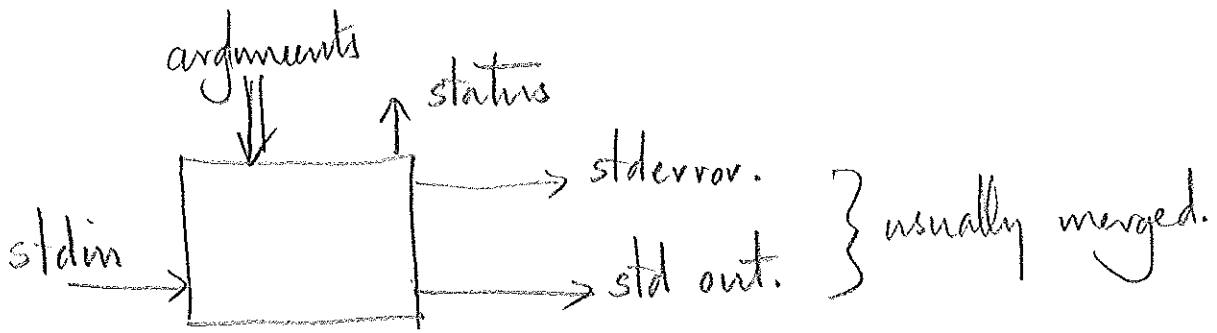 arguments
status
stderror.
stdin
std out.
usually merged.